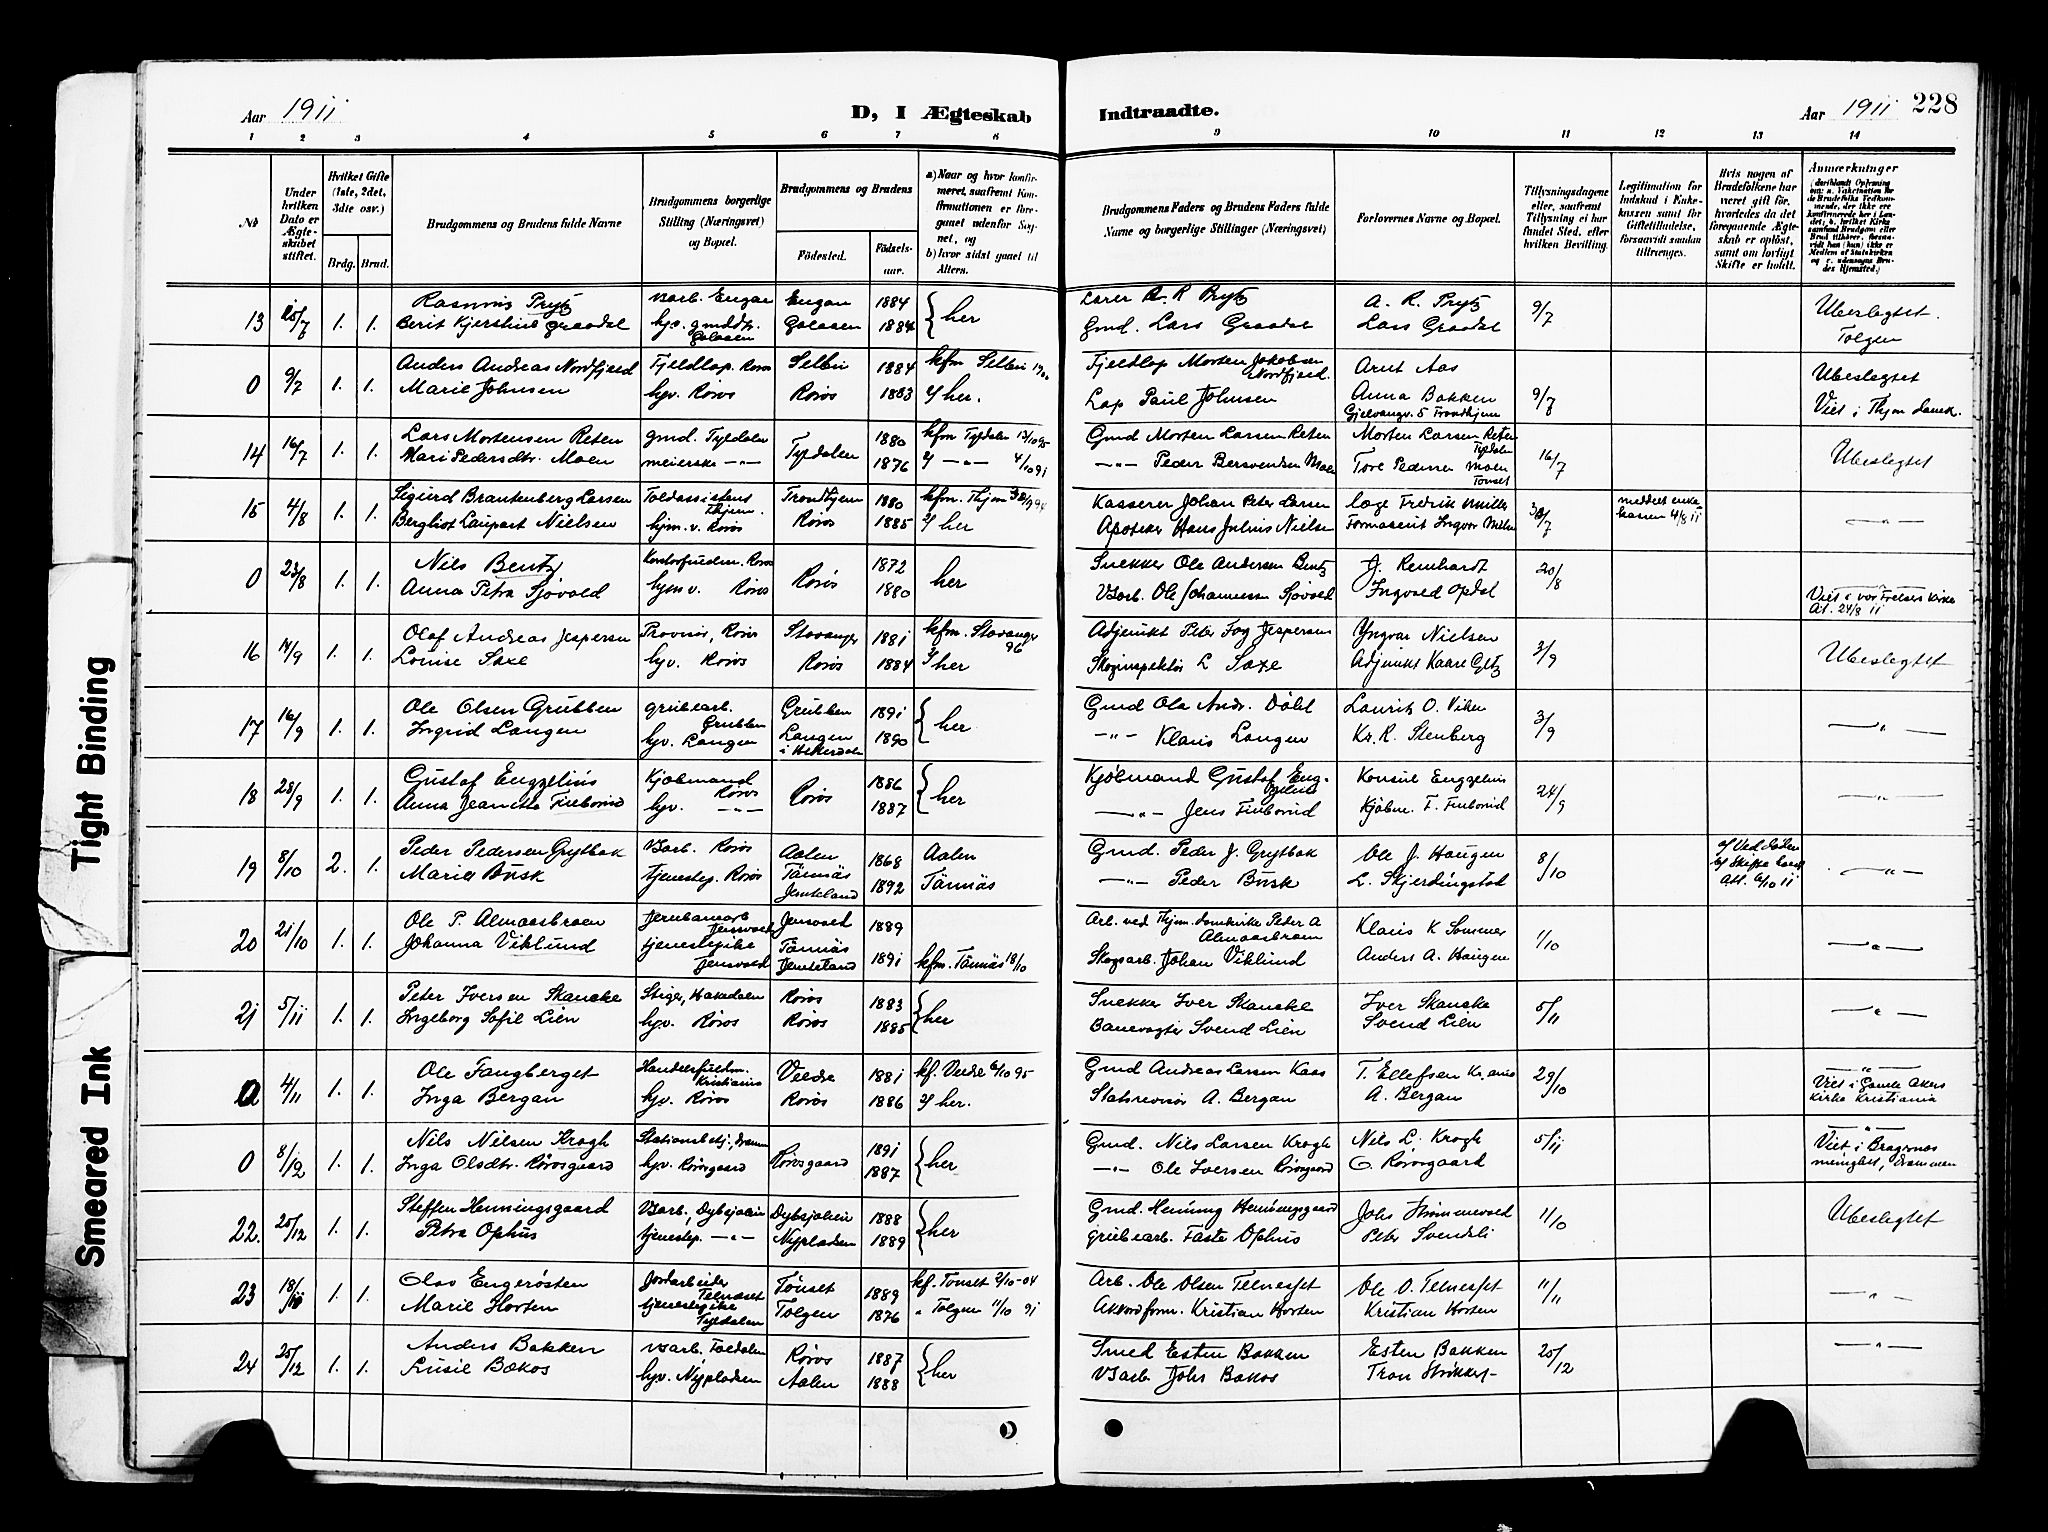 Aar 1911
D, I Ægteskab
Indtraadte.
Aar 1911
228
1 2 3 4 5 6 7 8 9 10 11 12 13 14
№
Under hvilken Dato er Ægteskabet stiftet.
Hvilket Gifte (1ste, 2det, 3die osv.)
Brdg. Brud.
Brudgommens og Brudens fulde Navne
Brudgommens borgerlige Stilling (Næringsvei) og Bopæl.
Brudgommens og Brudens
Fødested.
Fødselsaar.
a) Naar og hvor konfirmeret, saafremt Konfirmationen er foregaaet udenfor Sognet, og
b) hvor sidst gaaet til Alters.
Brudgommens Faders og Brudens Faders fulde Navne og borgerlige Stillinger (Næringsvei)
Forlovernes Navne og Bopæl.
Tillysningsdagene eller, saafremt Tillysning ei har fundet Sted, efter hvilken Bevilling.
Legitimation for Indskud i Enkekassen samt for Giftetilladelse, forsaavidt saadan tiltrænges.
Hvis nogen af Brudefolkene har været gift før, hvorledes da det foregaaende Ægteskab er opløst, samt om lovligt Skifte er holdt.
Anmærkninger
13 25/7 1. 1. Rasmus Prytz varb. Engan Engan 1884 her Lærer R. R Prytz A. R. Prytz 9/7 Ubeslegtet.
Berit Kjerstine Graadal hjv. gmddtr. Galaaen Galaaen 1884 Gmd. Lars Graadal Lars Graadal Tolgen
0 9/7 1. 1. Anders Andreas Nordfjeld Fjeldlap. Røros Selbu 1884 kfm Selbu Fjeldlap Morten Jakobsen Nordfjeld. Arnt Aas 9/7 Ubeslegtet
Marie Johnsen hjv. Røros Røros 1883 her. Lap Paul Johnsen Anna Bakken Gjelvangv. 5 Trondhjem Viet i Thjem domk.
14 16/7 1. 1. Lars Mortensen Reten gmd. Tyldalen Tyldalen 1880 kfm Tyldalen 13/10 95 Gmd Morten Larsen Reten Morten Larsen Reten Tyldalen 16/7 Ubeslegtet
Mari Pedersdtr. Moen meierske -"- 1876 -"- 4/10 91 -"- Peder Bersvendsen Moen Tore Pedersen Moen Tonset
15 4/8 1. 1. Sigurd Brantenberg Larsen Toldassistent Thjem. Trondhjem 1880 kfm. Thjem Kasserer Johan Peter Larsen læge Fredrik Müller 30/7 meddelt enkekassen 4/8 11 -"-
Bergliot Laupart Nielsen hjm. v. Røros Røros 1885 her Apoteker Hans Julius Nielsen Farmaseut Ingvar
0 23/8 1. 1. Nils Bentz Kontorfuldm. Røros Røros 1872 her Snekker Ole Andersen Bentz J. Reinhardt 20/8
Anna Petra Sjøvold hjem v. Røros 1880 Varb. Ole Johannesen Sjøvold Ingvald Opdal Viet i vor Frelsers Kirke At. 24/8 11
16 14/9 1. 1. Olaf Andreas Jespersen Provisor, Røros Stavanger 1881 kfm. Stavanger 96 Adjunkt Peter Fog Jespersen Yngvar Nielsen 3/9 Ubeslegtet
Louise Saxe hjv. Røros Røros 1884 her Skoginspektør L Saxe Adjunkt Kaare Getz
17 16/9 1. 1. Ole Olsen Grubben grubearb. Grubben Grubben 1891 her Gmd Ole Andr. Dahl Laurits O. Viken 3/9 -"-
Ingrid Langen hjv. Langen Langen i Hitterdalen 1890 -"- Klaus Langen Kr. R. Stenberg
18 28/9 1. 1. Gustaf Engzelius Kjøbmand Røros Røros 1886 her Kjøbmand Gustaf Engzelius Konsul Engzelius 24/9 -"-
Anna Jeanette Finborud hjv. -"- 1887 -"- Jens Finborud Kjøbm. F. Finborud
19 8/10 2. 1. Peder Pedersen Grytbak Varb. Røros Aalen 1868 Aalen Gmd. Peder J. Grytbak Ole J. Haugen 8/10 a/ Ved døden b/ Skifte holdt Att. 6/10 11 -"-
Maria Busk tjenestep. Røros Tännäs Jemteland 1892 Tännäs -"- Peder Busk L. Skjerdingstad
20 21/10 1. 1. Ole P. Almaasbraen Jernbanearb Jensvold Jensvold 1889 Arb. ved Thjem. domkirke Peder A Almaasbraen Klaus K Sommer 1/10 -"-
Johanna Viklund tjenestepike Jensvold Tännäs Jemteland 1891 kfm. Tännäs 18/10 Skogsarb. Johan Viklund Anders A. Haugen
21 5/11 1. 1. Peter Iversen Skancke Stiger, Hakedalen Røros 1883 her Snekker Iver Skancke Iver Skancke 5/11 -"-
Ingeborg Sofie Lien hjv. Røros Røros 1885 Banevogter Svend Lien Svend Lien
0 4/11 1. 1. Ole Fangberget Handelsfuldm. Kristiania Veldre 1881 kf. Veldre 6/10 95 Gmd Andreas Larsen Kaas T. Ellefsen Kr.ania 29/10 -"-
Inga Bergan hjv. Røros Røros 1886 her. Statsrevisor A. Bergan A. Bergan Viet i Gamle Akers Kirke Kristiania
0 8/12 1. 1. Nils Nilsen Krogh Stationsbetj. Drammen Rørosgaard 1891 her Gmd. Nils Larsen Krogh Nils L. Krogh 5/11 -"-
Inga Olsdtr. Rørosgaard hjv. Rørosgaard 1887 -"- Ole Iversen Rørosgaard O. Rørosgaard Viet i Bragernes menighet, Drammen
22. 25/12 1. 1. Steffen Henningsgaard Varb. Dybsjølien Dybsjølien 1888 her Gmd. Henning Henningsgaard Johs Strømmevold 11/10 Ubeslegtet
Petra Ophus tjenestep. -"- Nypladsen 1889 grubearb. Faste Ophus Peter Svendsli
23 18/11 1. 1. Olav Engerøsten Jordarbeider Telneset Tønset 1889 kf. Tønset 2/10-04 Arb. Ole Olsen Telneset Ole O. Telneset 11/11 -"-
Marie Horten tjenestepike Tyldalen Tolgen 1876 " Tolgen 11/10 91 Akkordform. Kristian Horten Kristian Horten
24 25/12 1. 1. Anders Bakken varb. Tyldalen Røros 1887 her Smed Esten Bakken Esten Bakken 25/12 -"-
Lusie Bækos hjv. Nypladsen Aalen 1888 Varb Johs Bækos Tron
Tight Binding
Smeared Ink